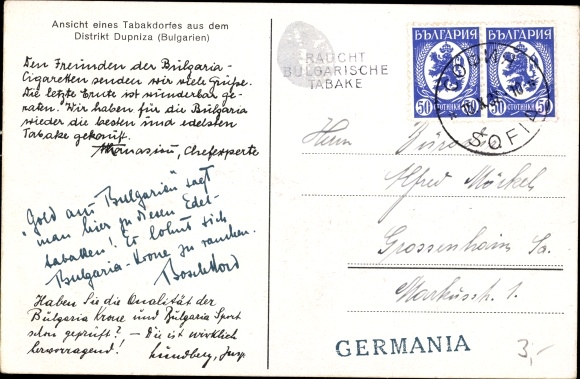 Ansicht eines Tabakdorfes aus dem
Distrikt Dupniza (Bulgarien)
Den Freunden der Bulgaria-
Cigaretten senden wir viele Grüße.
Die letzte Ernte ist wunderbar ge-
raten. Wir haben für die Bulgaria
wieder die besten und edelsten
Tabake gekauft.
Athanasiu, Chefexperte
"Gold aus Bulgarien" sagt
man hier zu diesen Edel-
tabaken! Es lohnt sich
Bulgaria-Krone zu rauchen.
Haben Sie die Qualität der
Bulgaria Krone und Bulgaria Sport
schon geprüft? - Die ist wirklich
hervorragend! Lundberg, Insp.
RAUCHT
BULGARISCHE
TABAKE
БЪЛГАРИЯ БЪЛГАРИЯ
50 СТОТИНКИ 50 50 СТОТИНКИ 50
СОФИЯ
SOFIA
Herrn
Alfred Möckel
Grossenhain Sa.
Markusstr. 1.
GERMANIA
3,-